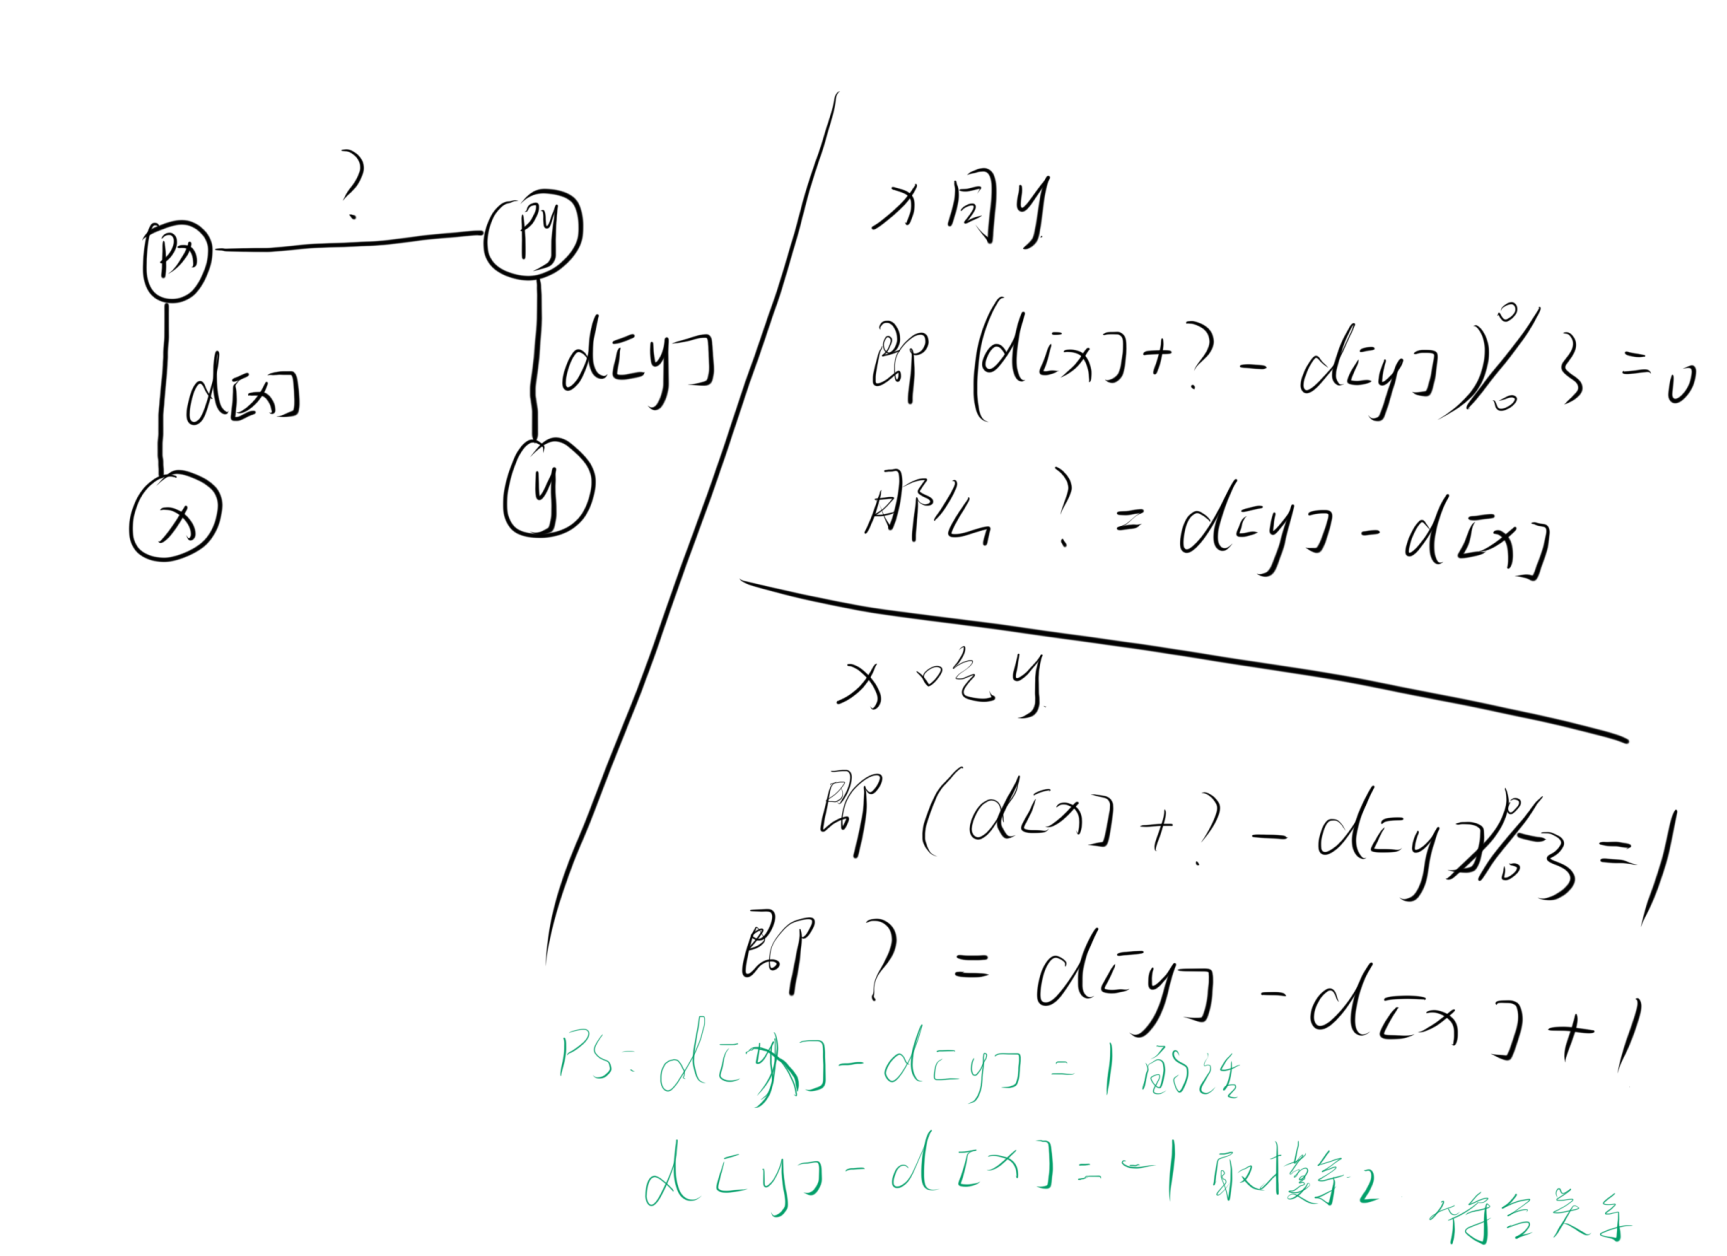 ?
px
py
d[x]
d[y]
x
y
x同y
即 (d[x]+?-d[y])%3=0
那么 ?=d[y]-d[x]
x吃y
即 (d[x]+?-d[y])%3=1
即 ?=d[y]-d[x]+1
PS: d[x]-d[y]=1的话
d[y]-d[x]=-1取模等2
符合关系